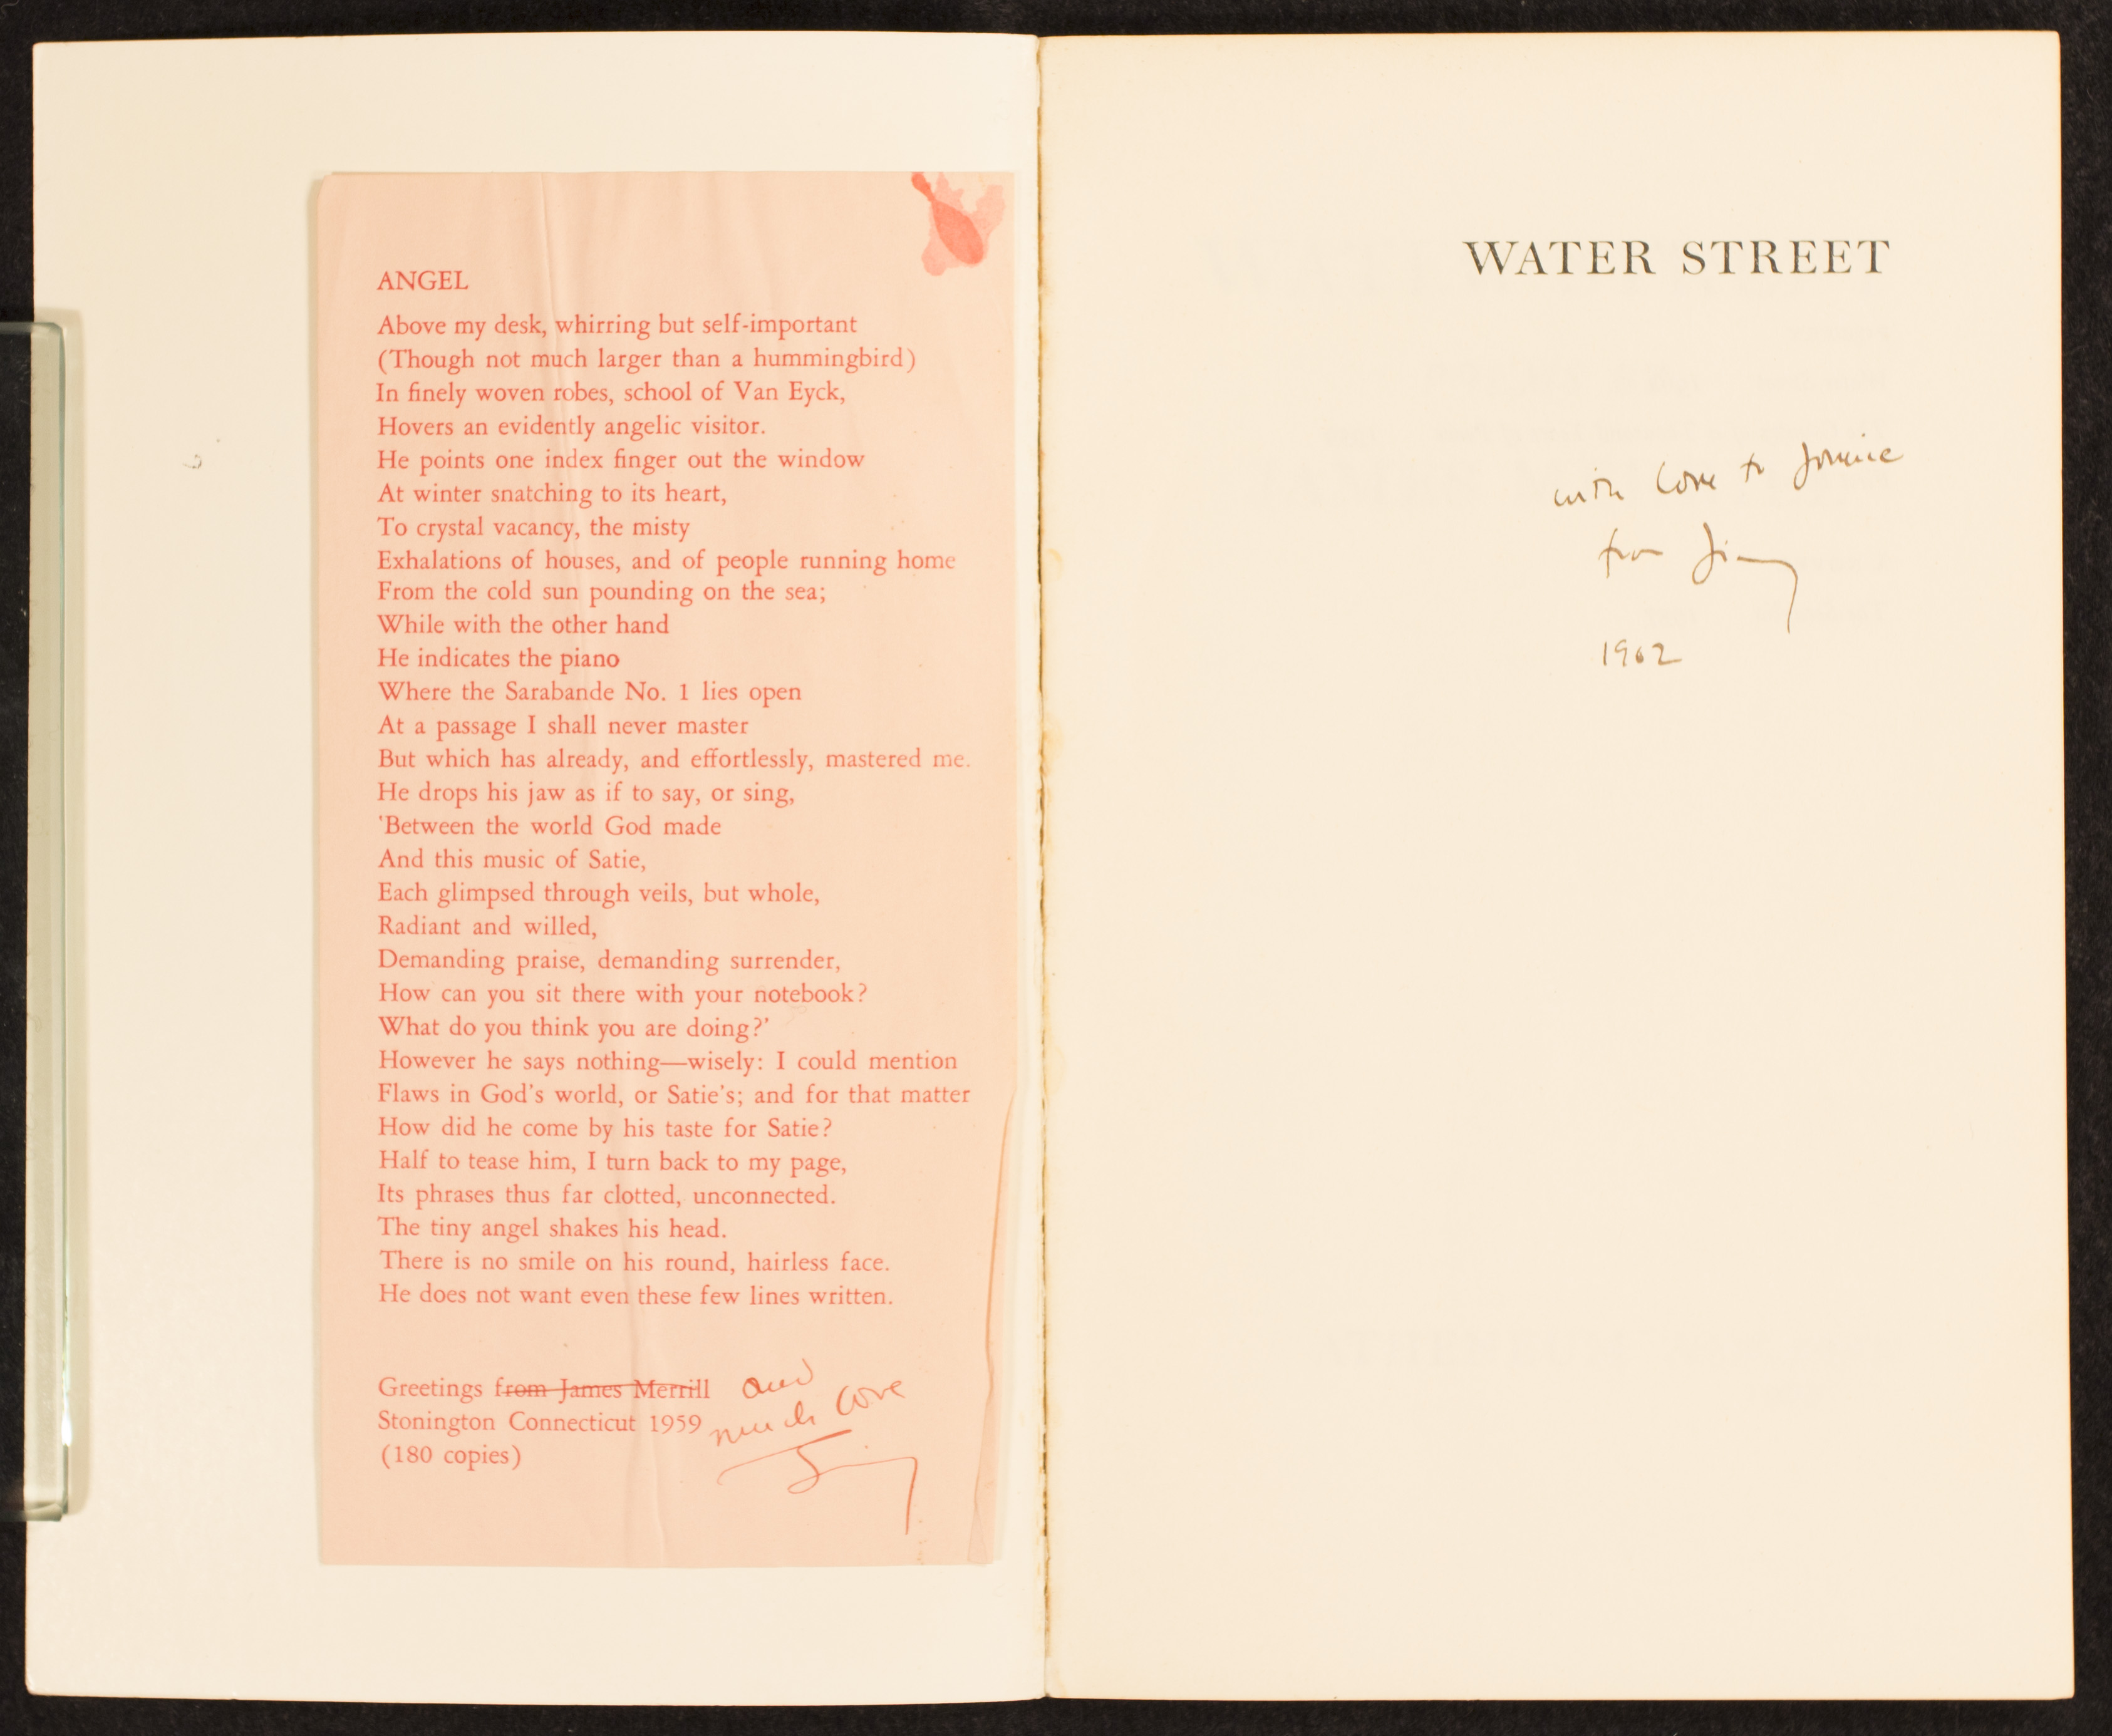 ANGEL
Above my desk, whirring but self-important
(Though not much larger than a hummingbird)
In finely woven robes, school of Van Eyck,
Hovers an evidently angelic visitor.
He points one index finger out the window
At winter snatching to its heart,
To crystal vacancy, the misty
Exhalations of houses, and of people running home
From the cold sun pounding on the sea;
While with the other hand
He indicates the piano
Where the Sarabande No. 1 lies open
At a passage I shall never master
But which has already, and effortlessly, mastered me.
He drops his jaw as if to say, or sing,
'Between the world God made
And this music of Satie,
Each glimpsed through veils, but whole,
Radiant and willed,
Demanding praise, demanding surrender,
How can you sit there with your notebook?
What do you think you are doing?'
However he says nothing—wisely: I could mention
Flaws in God's world, or Satie's; and for that matter
How did he come by his taste for Satie?
Half to tease him, I turn back to my page,
Its phrases thus far clotted, unconnected.
The tiny angel shakes his head.
There is no smile on his round, hairless face.
He does not want even these few lines written.
Greetings from James Merrill and
Stonington Connecticut 1959 much love
(180 copies) Jimmy
WATER STREET
with love to
from Jimmy
1962